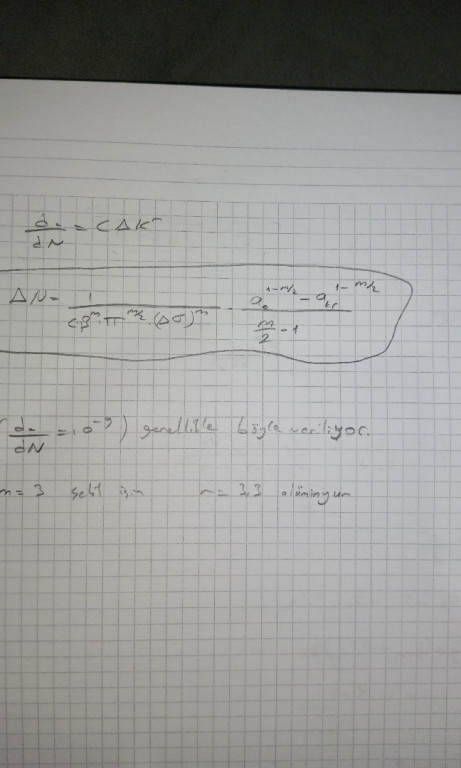 da/dN = C ΔK^m
ΔN = 1 / (C·β^m·π^(m/2)·(Δσ)^m) · (a₀^(1-m/2) - a_kr^(1-m/2)) / (m/2 - 1)
(da/dN = 10^-9) genellikle böyle veriliyor.
m = 3 için m = 3,3 alüminyum